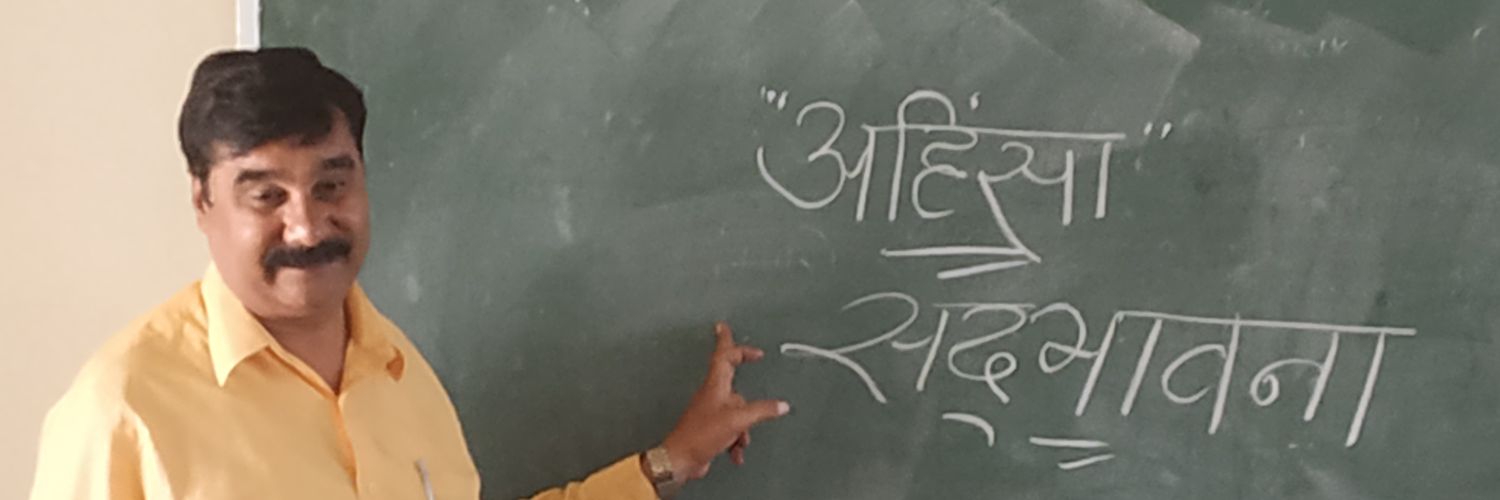 "अहिंसा"
सद्भावना